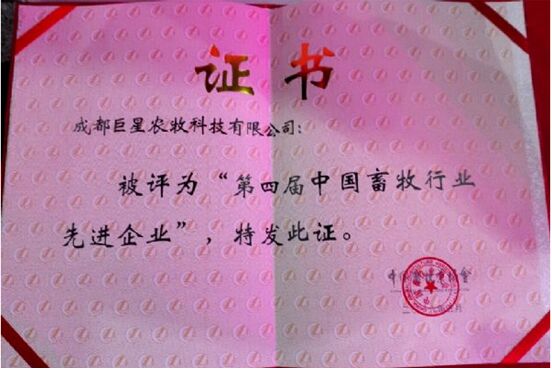 证书
成都巨星农牧科技有限公司：
被评为“第四届中国畜牧行业
先进企业”，特发此证。